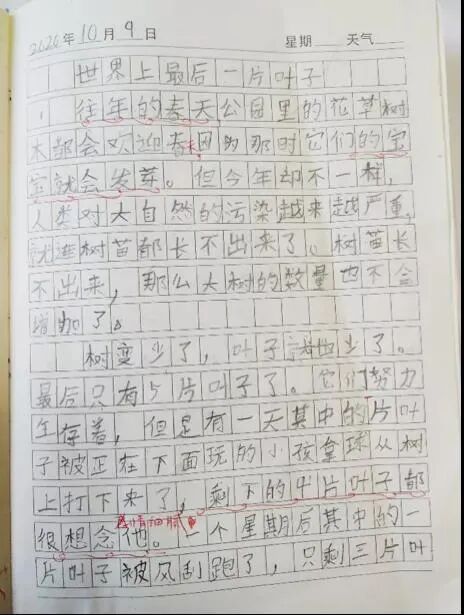 2020年10月9日 星期 天气
世界上最后一片叶子
往年的春天公园里的花草树
木都会欢迎春因为那时它们的宝
宝就会发芽。但今年却不一样,
人类对大自然的污染越来越严重,
就连树苗都长不出来了、树苗长
不出来,那么大树的数量也不会
增加了。
树变少了,叶子也少了。
最后只有5片叶子了。它们努力
生存着,但是有一天其中的1片叶
子被正在下面玩的小孩拿球从树
上打下来了,剩下的4片叶子都
很想念他。一个星期后其中的一
片叶子被风刮跑了,只剩三片叶